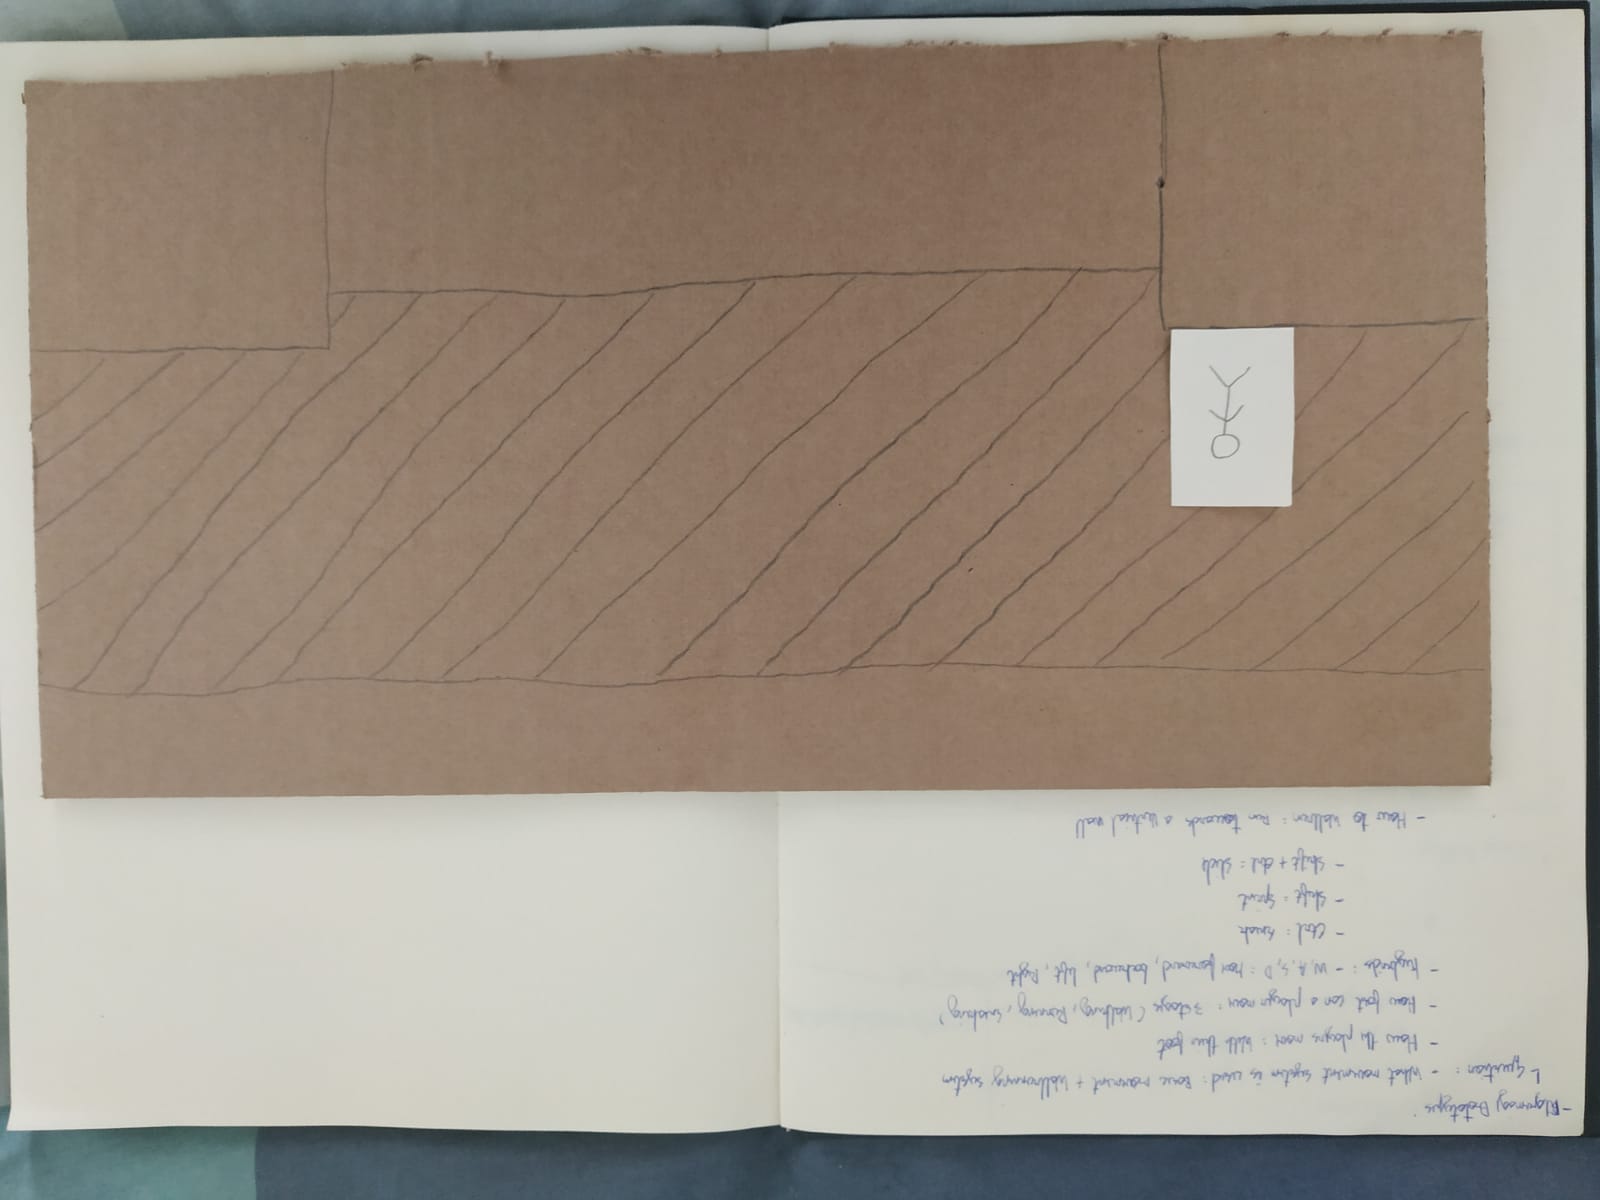 - Prototype
└ Question: - What movement system is used: Basic movement + Wallrunning system
- How the players move: With their foot
- How fast can a player move: 3 stages (Walking, Running, Sneaking)
- Keybinds: - W, A, S, D: Move forward, backward, left, Right
- Ctrl: Sneak
- Shift: Sprint
- Shift + Ctrl = Slide
- How to Wallrun: Run towards a Vertical wall